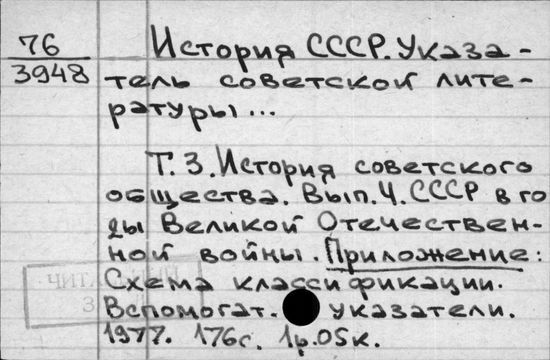 76
3948
История СССР. Указа-
тель советской лите-
ратуры...
Т. 3. История советского
общества. Вып. 4. СССР в го
ды Великой Отечествен-
ной войны. Приложение:
Схема классификации.
Вспомогат. указатели.
1977. 176с. 1р.05к.